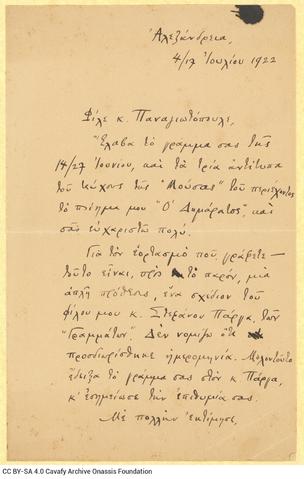 Ἀλεξάνδρεια,
4/17 Ἰουλίου 1922
Φίλε κ. Παναγιωτόπουλε,
Ἔλαβα τὸ γράμμα σας τῆς
14/27 Ἰουνίου, καὶ τὰ τρία ἀντίτυπα
τοῦ τεύχους τῆς "Μούσας" τοῦ περιέχοντος
τὸ ποίημα μου "Ὁ Δημάρατος", καὶ
σᾶς εὐχαριστῶ πολύ.
Γιὰ τὸν ἑορτασμὸ ποῦ γράφετε —
τοῦτο εἶναι, πρὸς τὸ παρόν, μιὰ
ἁπλῆ πρόθεσις, ἕνα σχέδιον τοῦ
φίλου μου κ. Στεφάνου Πάργα, τῶν
"Γραμμάτων". Δὲν νομίζω ὅτι
προσδιορίσθηκε ἡμερομηνία. Μολοντοῦτο
ἔδειξα τὸ γράμμα σας στὸν κ. Πάργα,
κ' ἐσημείωσε τὴν ἐπιθυμία σας.
Μὲ πολλὴν ἐκτίμησι,
CC BY-SA 4.0 Cavafy Archive Onassis Foundation